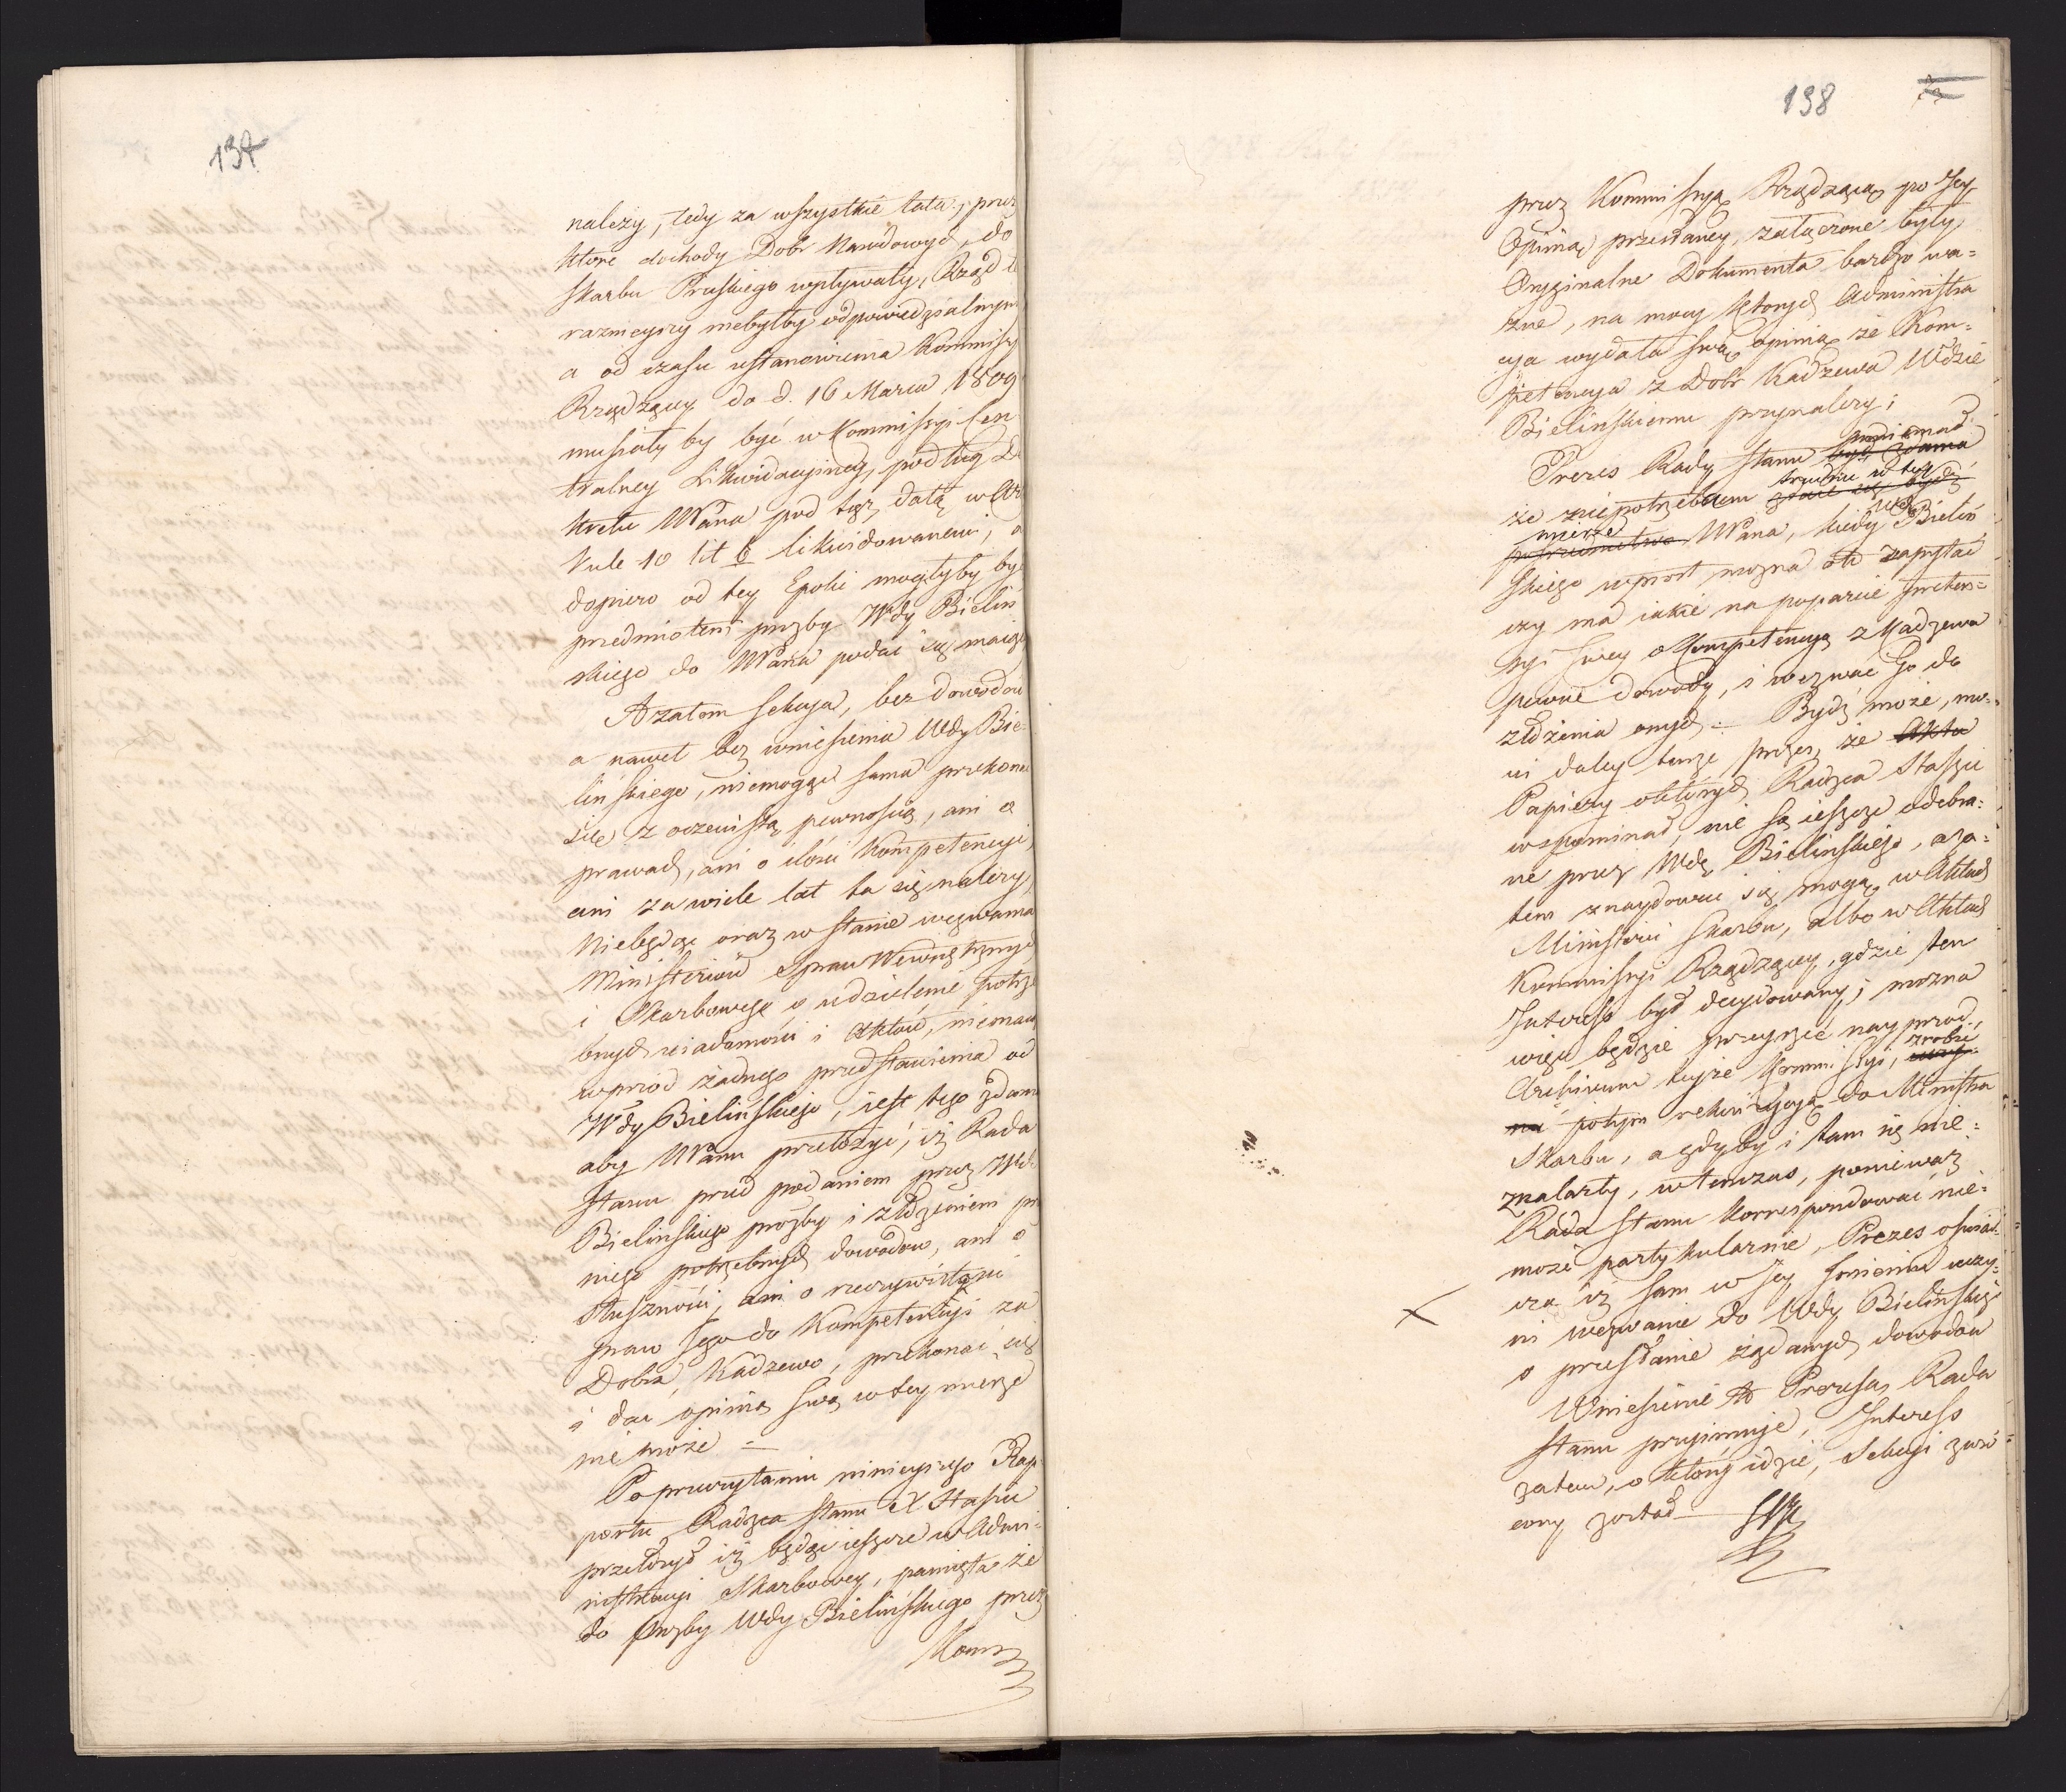 137
należy, tedy za wszystkie lata, przez
ktore dochody Dobr Narodowych, do
Skarbu Pruskiego wpływały, Rząd te
raznieyszy niebyłby odpowiedzialnym
a od czasu ustanowienia Kommissyi
Rządzącey do d. 16 Marca 1809
musiały by być w Kommissyi Cen
tralney Likwidacyiney, podług De
kretu NPana pod tąż datą w Ar
kule 10 lit b likwidowanemi, a
dopiero od tey Epoki mogłyby by
przedmiotem prozby Wdy Bieliń
skiego do NPana podać się maiące
A zatem Sekcya, bez dowodow
a nawet bez wniesienia Wdy Bie
lińskiego, niemogąc sama przekonać
się z oczewistą pewnością, ani o
prawach, ani o ilości Kompetencyi
ani za wiele lat ta się należy,
Niebędąc oraz w stanie wezwania
Ministeriow Spraw Wewnętrznych
i Skarbowego o udzielenie potrze
bnych wiadomości i Aktow, niemaiąc
wprzod żadnego przedstawienia od
Wdy Bielińskiego, iest tego zdania
aby NPanu przełożyć, iż Rada
Stanu przed podaniem przez Wdę
Bielinskiego prozby i złożeniem prz
niego potrzebnych dowodow, ani o
słuszności, ani o rzeczywistości
praw Jego do Kompetencyi za
Dobra Kadzewo, przekonać się
i dać opinią swą w tey mierze
nie może =
Po przeczytaniu ninieyszego Rap
portu Radzca Stanu X Staszic
przełożył iż będąc ieszcze w Admi=
nistracyi Skarbowey, pamięta że
do prozby Wdy Bielińskiego przez
Komm
138
przez Kommissyą Rządzącą po Jey
Opinią przesłaney, załączone były
Oryginalne Dokumenta bardzo wa=
żne, na mocy ktorych Administra
cya wydała swą opinią że Kom=
petencya z Dobr Kadzewa Wdzie
Bielińskiemu przynależy;
Prezes Rady Stanu był zdania
mniemał
że zniepotrzebnem
trudnić w tey
mierze NPana, kiedy Wdę Bieliń
skiego wprost można o to zapytać
czy ma iakie na poparcie preten=
syi swey o Kompetencyą z Kadzewa
pewne dowody, i wezwać Go do
złożenia onych =. Bydź może, mo=
wi daley tenże prezes, że Akta
Papiery o ktorych Radzca Staszic
wspominał, nie są ieszcze odebra=
ne przez Wdę Bielinskiego, a za=
tem znaydować się mogą w Aktach
Ministerii Skarbu, albo w Aktach
Kommissyi Rządzącey, gdzie ten
Interess był decydowany; można
więc będzie przeyrzeć nayprzod,
Archivum teyże Kommissyi, zrobić
potym rekwizycyą do Ministra
Skarbu, a gdyby i tam się nie=
znalazły, w tenczas, ponieważ
Rada Stanu korrespondować nie=
może partykularnie, Prezes oświad=
cza iż sam w Jey Imieniu uczy=
ni wezwanie do Wdy Bielińskiego
o przesłanie żądanych dowodow
Wniesienie to Prezesa, Rada
Stanu przyimuje, Interess
zatem, o który idzie, Sekcyi zwró=
cony został